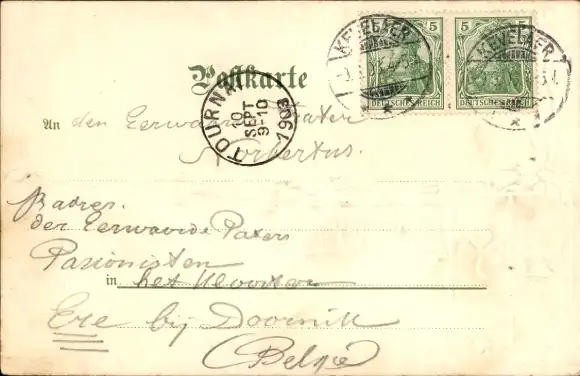 5 5
DEUTSCHES REICH DEUTSCHES REICH
KEVELAER KEVELAER
Postkarte
TOURNAI
10
SEPT
9-10
1903
An den Eerwaarde Pater
Norbertus.
der Eerwaarde Paters
Passionisten
in het Klooster
Ere bij Doornik
(Belgie)